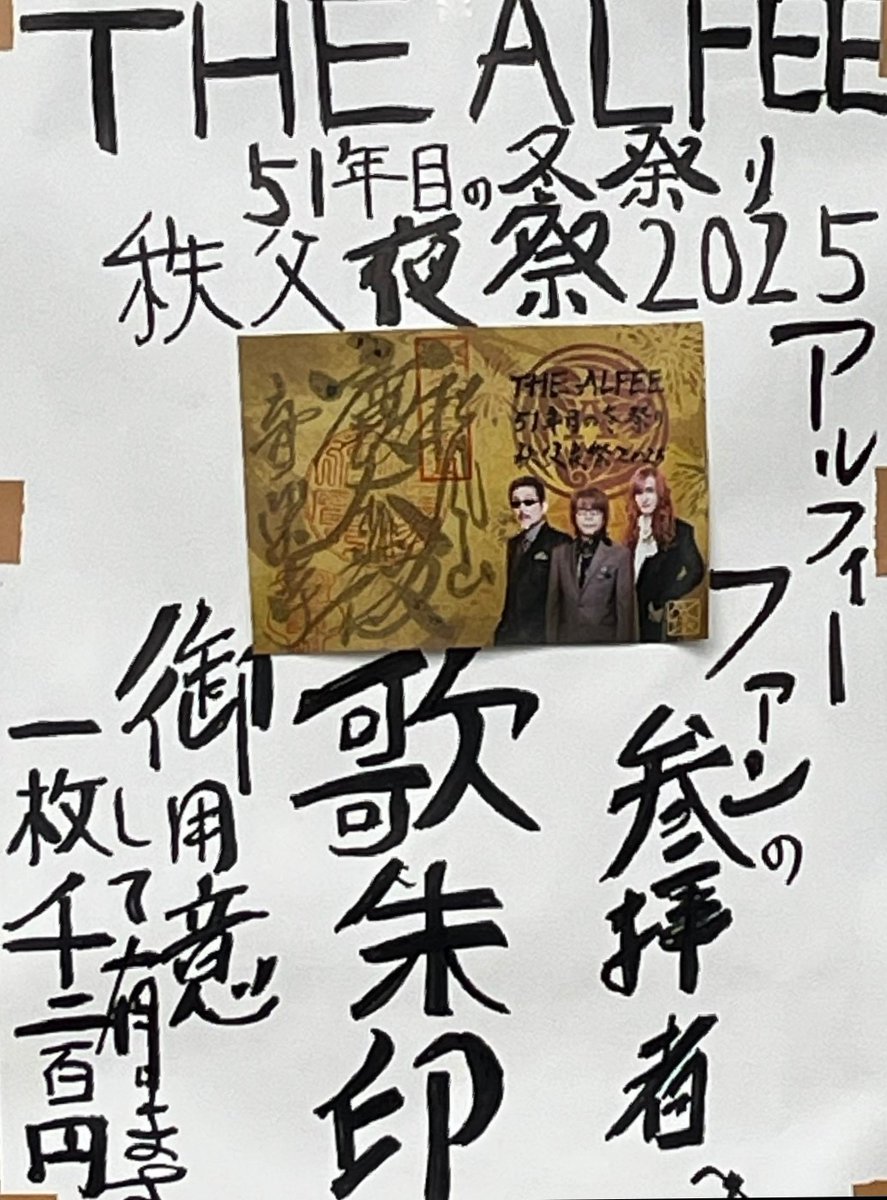 THE ALFEE
51年目の冬祭り
秩父夜祭2025
アルフィー
ファンの
参拝者へ
歌朱印
御用意
して有ります
一枚千二百円
THE ALFEE
51年目の冬祭り
秩父夜祭2025